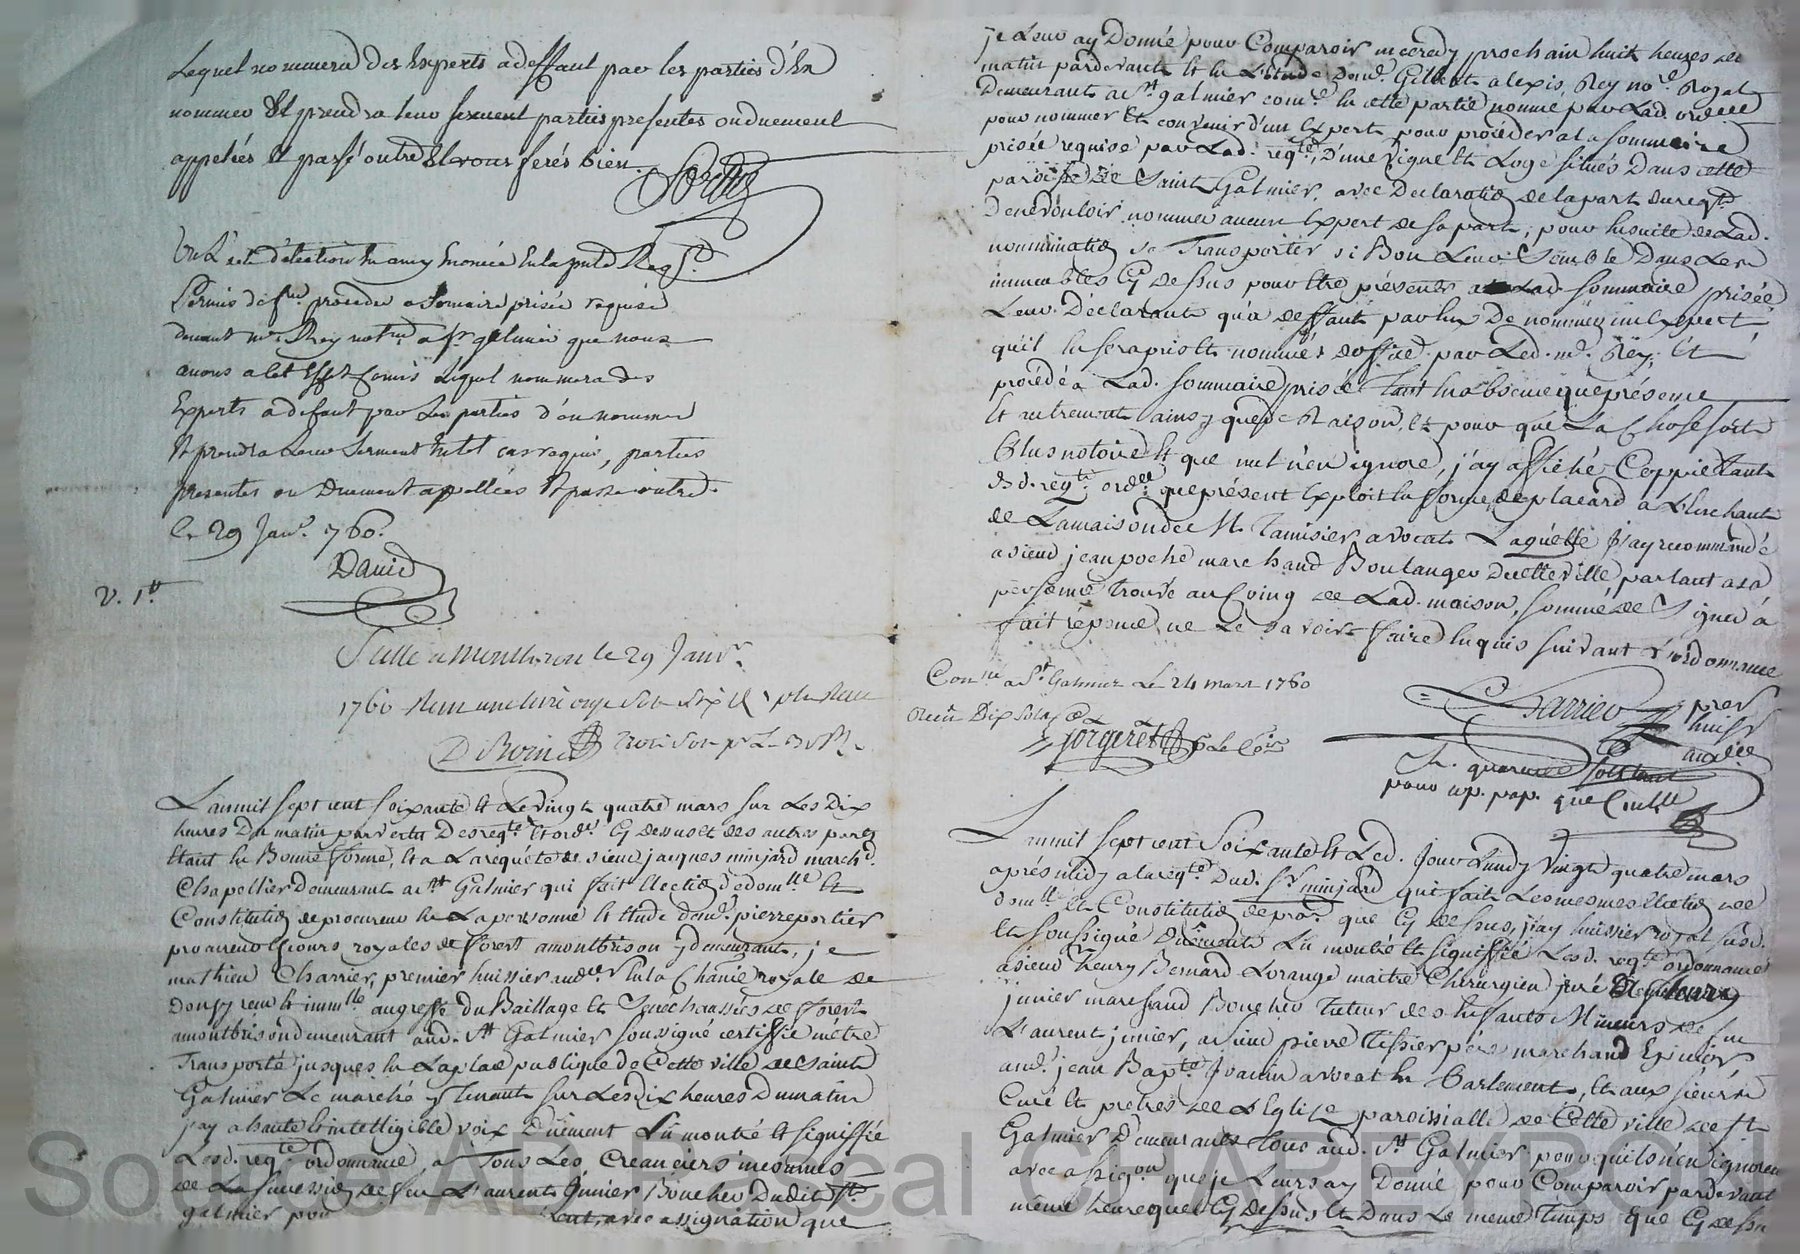 Lequel nommera des Experts a deffaut par les parties d'En
nommer Et prendra leur serment parties presentes ou duement
appelées Et passé outre Et vous ferés bien.
Vu L' d'élection
Permis de procedder a Somaire prisée requise
devant me Rey notre a st galmier que nous
avons a cet effet Comis Lequel nommera des
Experts a defaut par Les parties d'en nommer
Et prendra Leur Serment En tel cas requis, parties
presentes ou Duement appellées Et passé outre.
le 29 Janr. 1760.
David
V. 1er
Sellé a Montbrison le 29 Janr.
1760
L'an mil sept cent soixante Et Le vingt quatre mars sur Les Dix
heures Du matin par vertu Des reqte. Et ordce. Cy dessus Et des autres parts
Etant En Bonne forme, Et a La requête de sieur jacques minjard marchd.
Chapellier demeurant a st Galmier qui fait Election de domlle Et
Constitution de procureur En La personne Et Etude de me. pierre portier
procureur Es cours royales de forest a montbrison y demeurant, je
mathieu Charrier, premier huissier audcer En La Chanie royale de
Donzy reçu Et immlé au greffe du Baillage Et Senechaussée de forest
a montbrison demeurant aud. St Galmier soussigné certiffie m'être
Transporté jusques En La place publique de Cette ville de Saint
Galmier Le marché y Tenant sur Les dix heures Du matin
j'ay a haute Et intelligible voix Duement Lû montré Et signiffié
Lesd. reqte. ordonnance, a Tous Les Creanciers inconnus
de La Succession de feu Laurent Junier Boucher Dudit St
galmier pour avec assignation que
je Leur ay Donné pour Comparoir mecredy prochain huit heures de
matin pardevant Et En L'Etude de me. Gilbert alexis Rey nore. Royal
Demeurant a St galmier comre. En cette partie nommé par Lad. ordce
pour nommer Et convenir d'un Expert pour procéder a La sommaire
prisée requise par Lad. reqte., D'une vigne Et Loge situés Dans cette
paroisse de Saint Galmier, avec Declaration de la part du reqt.
De ne vouloir nommer aucun Expert de sa part, pour Ensuite de Lad.
nomination se Transporter si Bon Leur Semble Dans Les
immeubles Cy dessus pour Etre présents a Lad. sommaire prisée
Leur Déclarant qu'a deffaut par Eux De nommer un Expert
qu'il En sera pris Et nommés d'office par Led. me. Rey, Et
procédé a Lad. sommaire prisée Tant En absence que présence
Et autrement ainsy que de Raison, Et pour que La Chose soit
Plus notoire Et que nul n'en ignore, j'ay affiché Coppie Tant
desd. reqte. ordce. que présent Exploit En forme de placard a L'huchant
de La maison de Me Tamisier avocat Laquelle j'ay recommandé
a sieur jean poche marchand Boulanger De cette ville parlant a sa
personne trouvé au Coing de Lad. maison, sommé de Signer a
fait réponse ne Le savoir faire Enquis suivant L'ordonnance
Conlé a St. Galmier Le 24 mars 1760
Reçu Dix sols
forgeret
Charrier
prer
huissr
audcer
pour
L'an mil sept cent Soixante Et Led. jour Lundy Vingt quatre mars
après midy a la reqte. Dud. sr minjard qui fait Les mesmes Election de
domlle Et Constitution de procr. que Cy Dessus, j'ay huissier royal susd.
Et soussigné Duement Lû montré Et signiffié Lesd. reqte ordonnance
a sieur henry Bernard Lorange maitre Chirurgien juré
junier marchand Boucher Tuteur des Enfants Mineurs de feu
Laurent junier, a sieur pierre Tissier père marchand Epicier
a me. jean Bapte. Jvanin avocat En Parlement, Et aux sieurs
Curé Et prêtres de L'Eglise paroissialle de Cette ville de St
Galmier Demeurants Tous aud. St Galmier pour qu'ils n'En ignorent
avec assigon que je Leurs ay Donné pour Comparoir pardevant
même heure que Cy dessus, Et Dans Le même Temps que Cy dessus
Source AD Pascal CHAREYRON